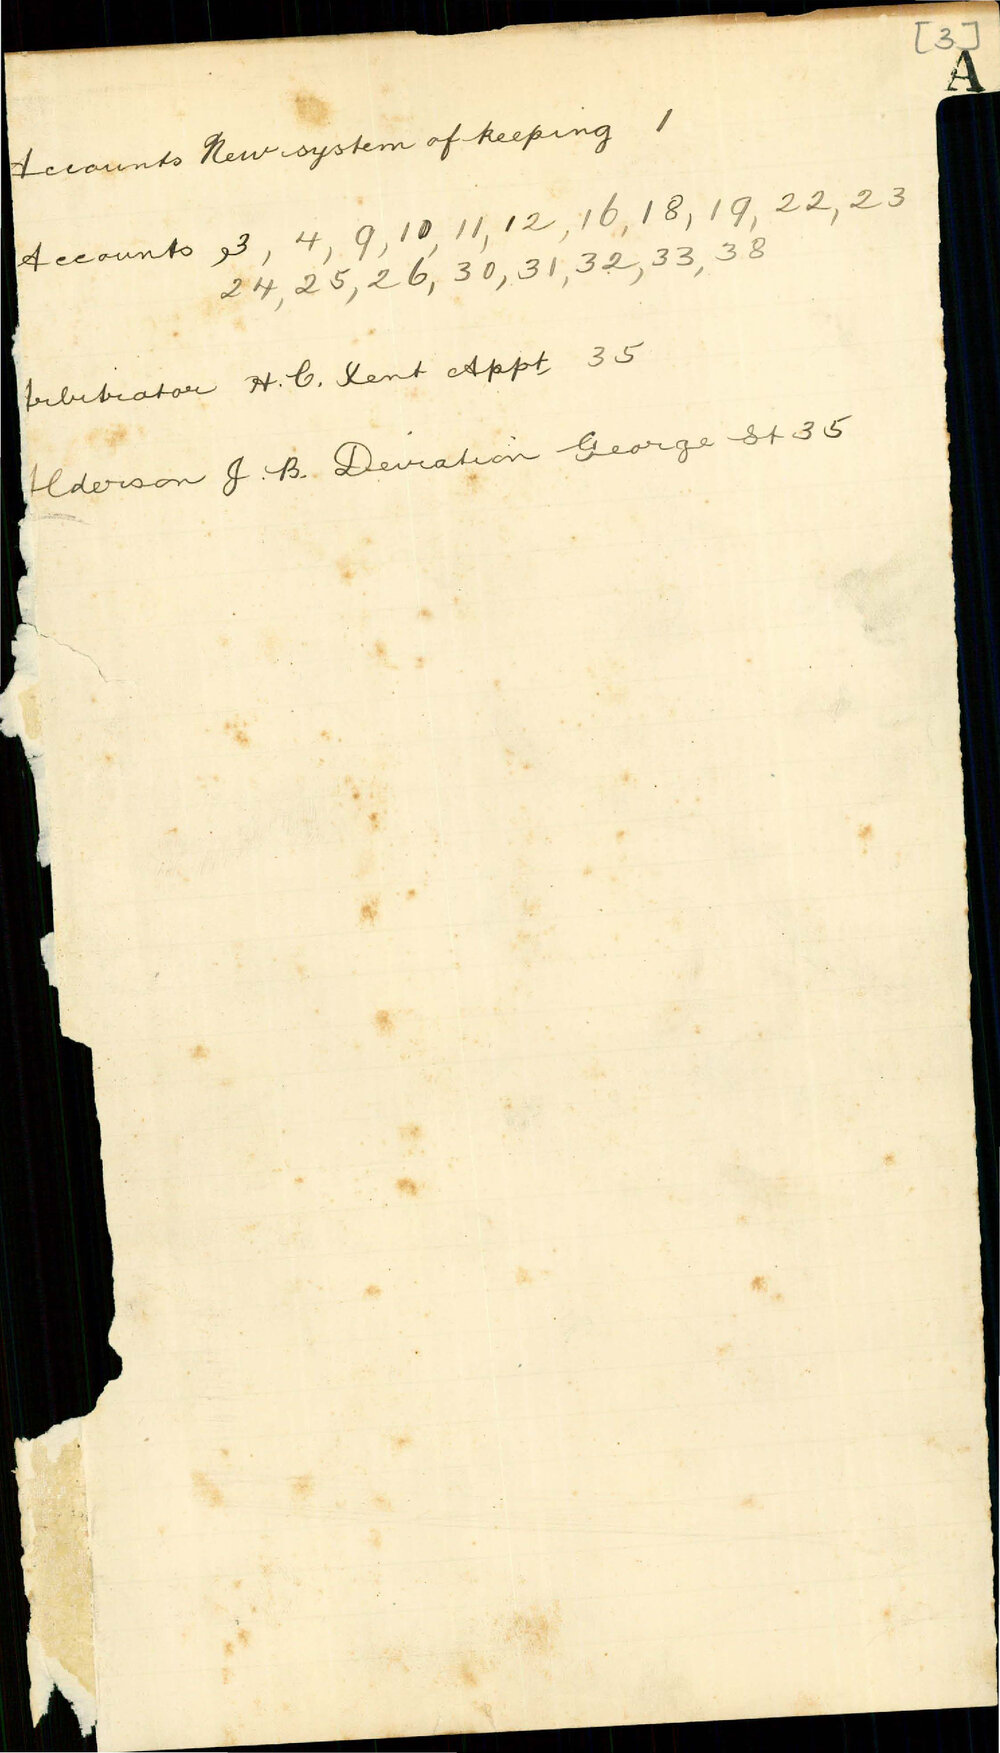 [3]
A
Accounts New system of keeping 1
Accounts 3, 4, 9, 10, 11, 12, 16, 18, 19, 22, 23
24, 25, 26, 30, 31, 32, 33, 38
Arbitrator H. C. Kent Appt. 35
Alderson J. B. Deviation George St 35